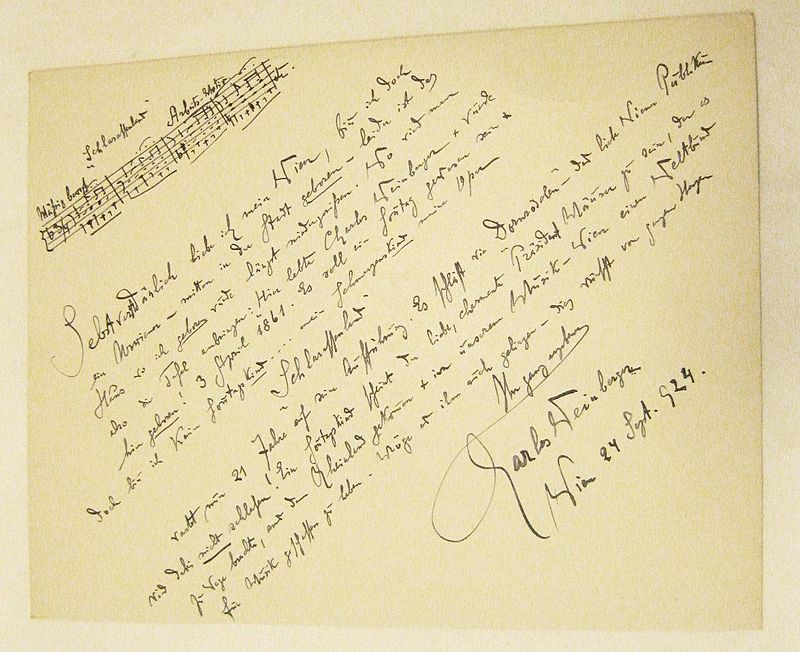 "Schlaraffenland" Arbeits Motiv
Selbstverständlich liebe ich mein Wien, bin ich doch
ein Wiener – mitten in der Stadt geboren – leider ist das
Haus wo ich geboren wurde längst niedergerissen. Wo wird man
also die Tafel anbringen: Hier lebte Charles Weinberger + wurde
hier geboren! 3 April 1861. Es soll ein Sonntag gewesen sein +
doch bin ich kein Sonntagskind .... mein Schmerzenskind meine Oper
"Schlaraffenland"
wartet nun 21 Jahre auf eine Aufführung. Es schläft wie Dornröschen – das liebe Wiener Publikum
wird dabei nicht schlafen! Ein Sonntagskind scheint der liebe, charmante Präsident zu sein, der es
zu Wege brachte, aus dem Rheinland gekommen + in unserem Musik-Wien einen Weltbund
für Musik geschaffen zu haben. Möge es ihm auch gelingen – dies wünscht von ganzem Herzen
Ihr ganz ergebener
Charles Weinberger
Wien 24 Sept. 924.